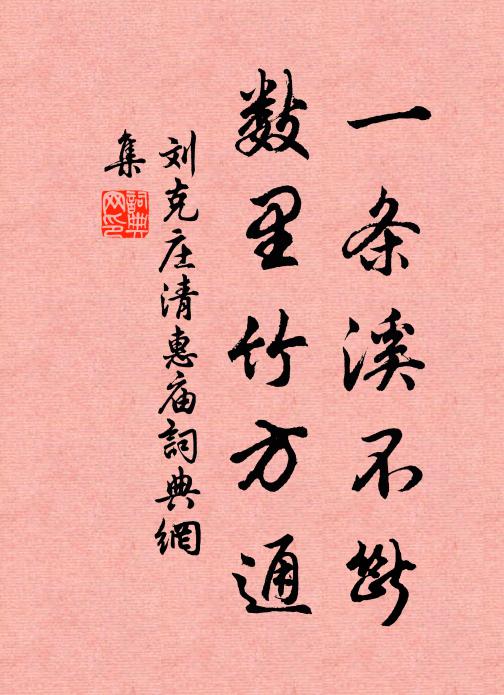 一条溪不断
数里竹方通
刘克庄清惠庙詞典網
集
詞典
网印